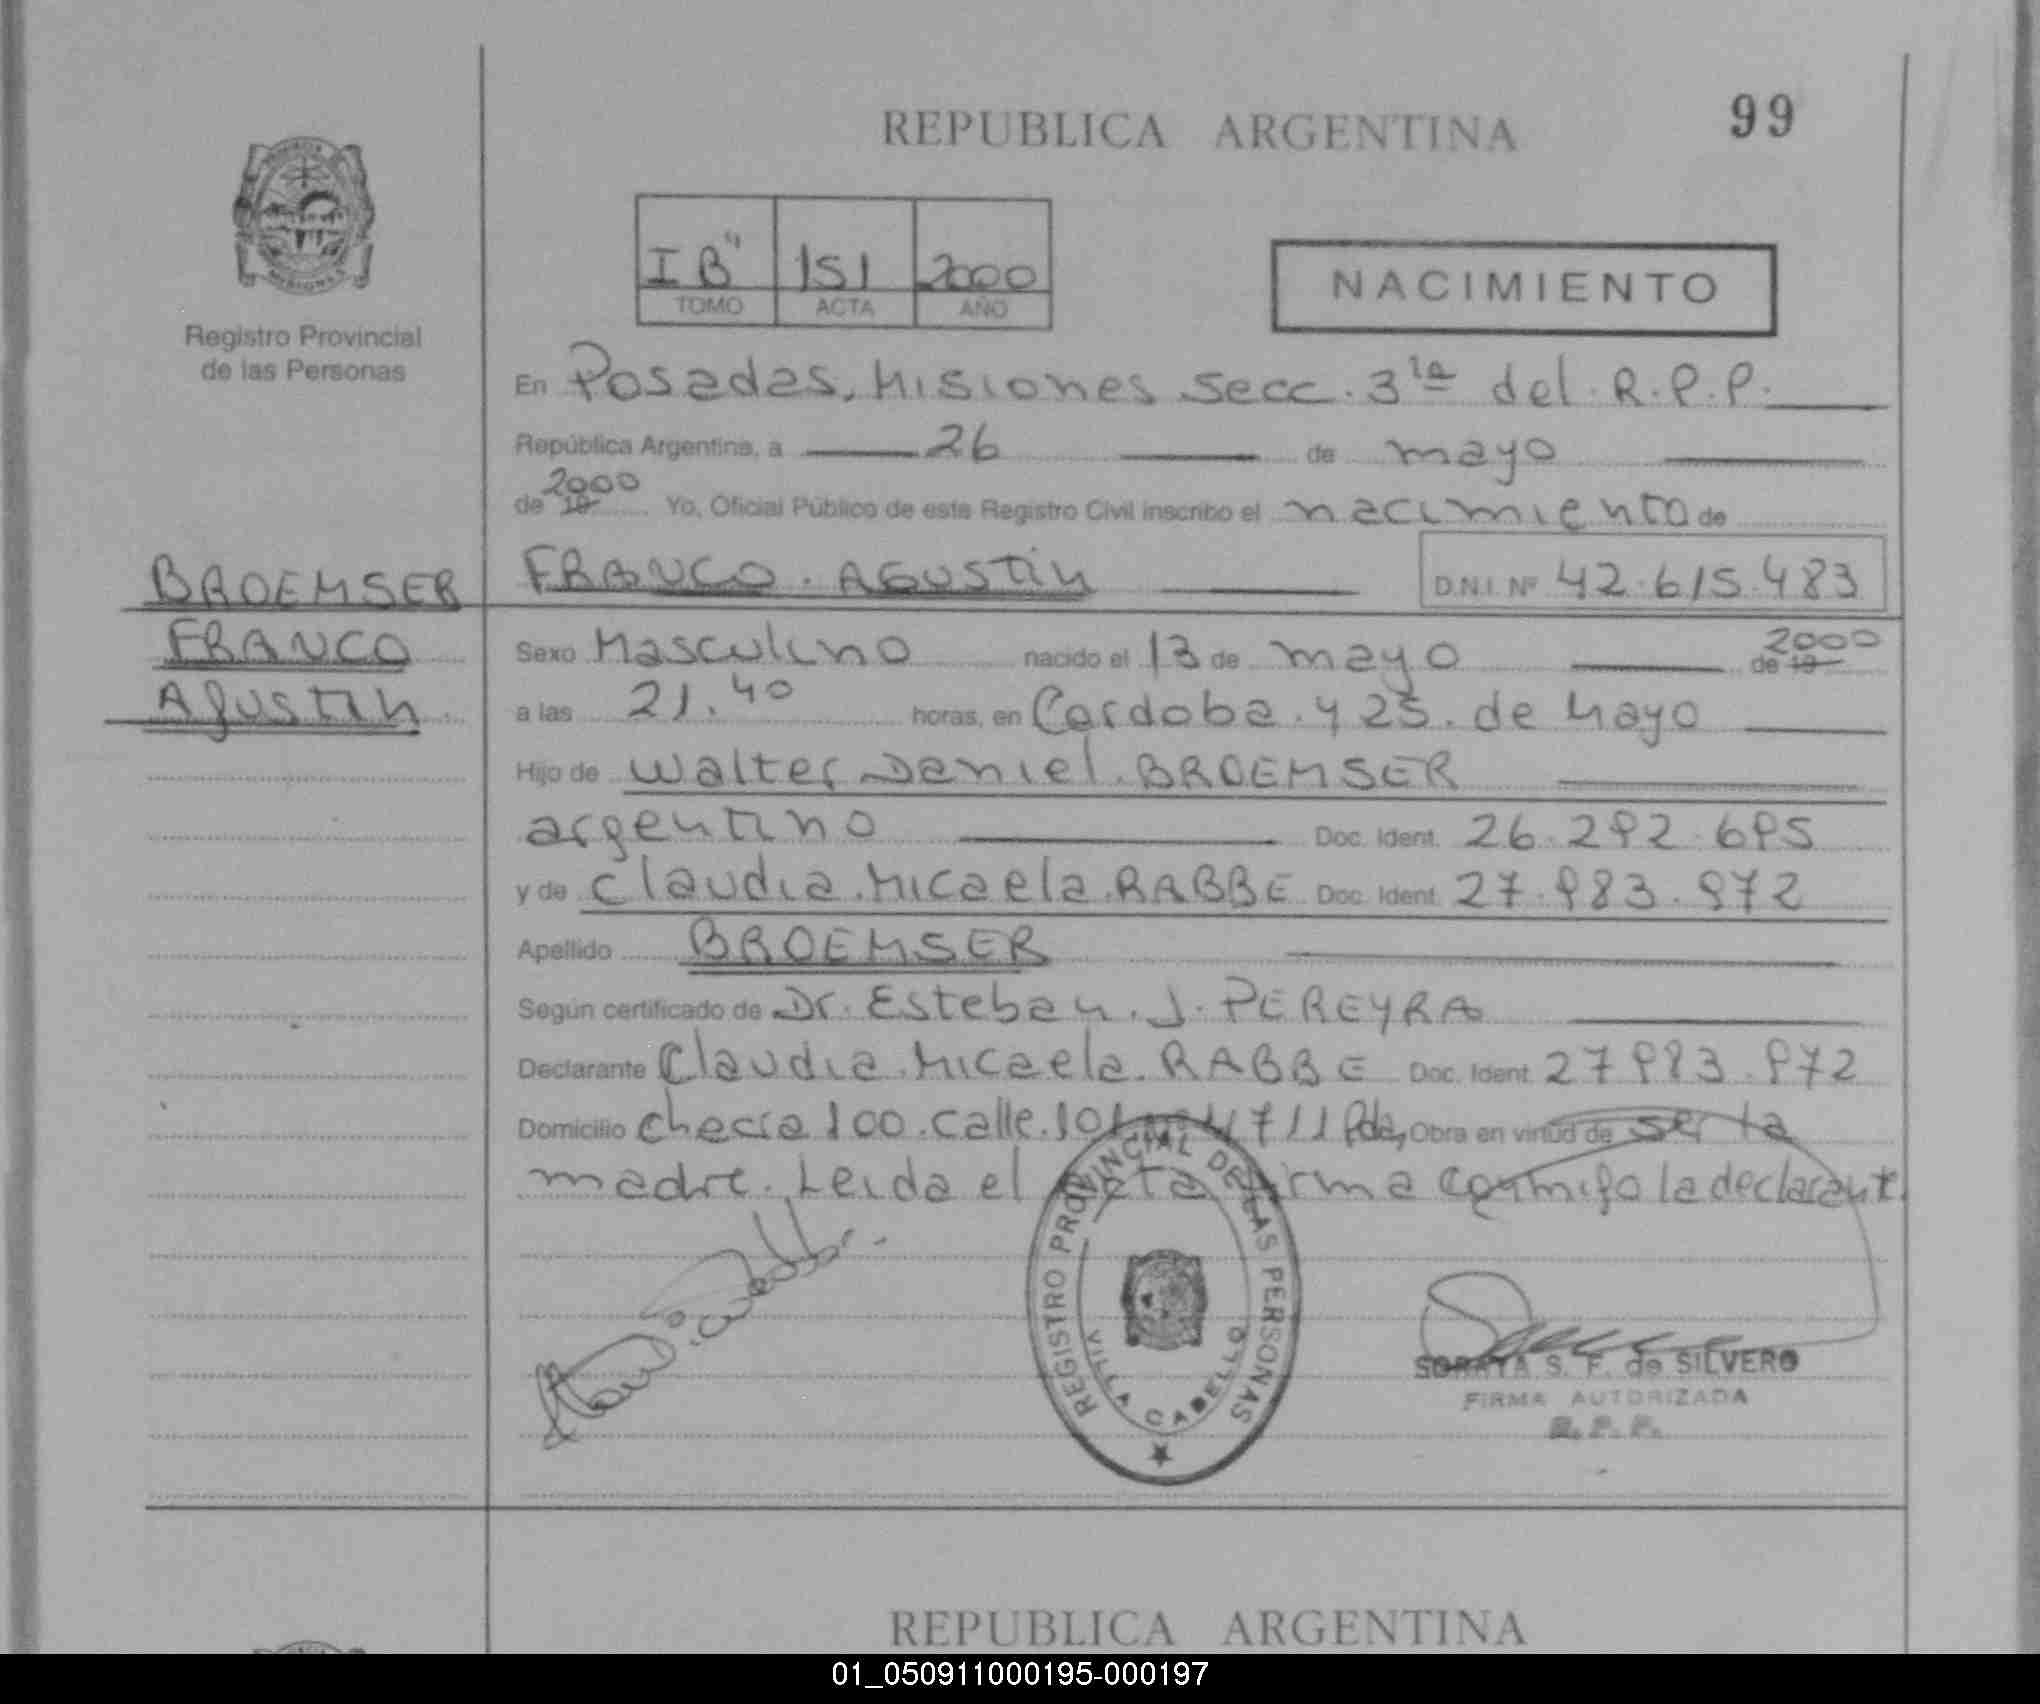 REPUBLICA ARGENTINA
99
I B" 151 2000
TOMO ACTA AÑO
NACIMIENTO
Registro Provincial
de las Personas
En Posadas, Misiones Secc. 3ra del R.P.P.
República Argentina, a 26 de mayo
de 19 2000 Yo, Oficial Público de este Registro Civil inscribo el nacimiento de
BROEMSER
FRANCO
Agustin
FRANCO. AGUSTIN D.N.I. Nº 42.615.483
Sexo Masculino nacido el 13 de mayo de 19 2000
a las 21.40 horas, en Cordoba y 25 de Mayo
Hijo de Walter Daniel BROEMSER
argentino Doc. Ident. 26.292.695
y de Claudia Micaela RABBE Doc. Ident. 27.983.972
Apellido BROEMSER
Según certificado de Dr. Esteban J. PEREYRA
Declarante Claudia Micaela RABBE Doc. Ident. 27983.972
Domicilio chacra 100 calle 4711 Pdas, Obra en virtud de ser la
madre. Leida el acta firma conmigo la declarante
REGISTRO PROVINCIAL DE LAS PERSONAS
VILLA CABELLO
SORAYA S. F. de SILVERO
FIRMA AUTORIZADA
R. P. P.
REPUBLICA ARGENTINA
01_050911000195-000197